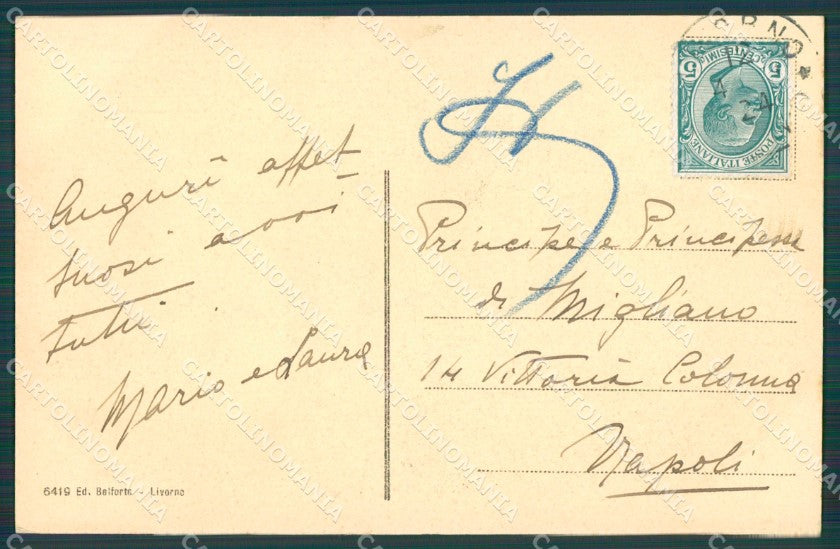 Auguri affet
tuosi a voi
tutti
Mario e Laura
6419 Ed. Belforte - Livorno
Principe e Principessa
di Migliano
14 Vittoria Colonna
Napoli
POSTE ITALIANE
CENTESIMI
5 5
CARTOLINOMANIA